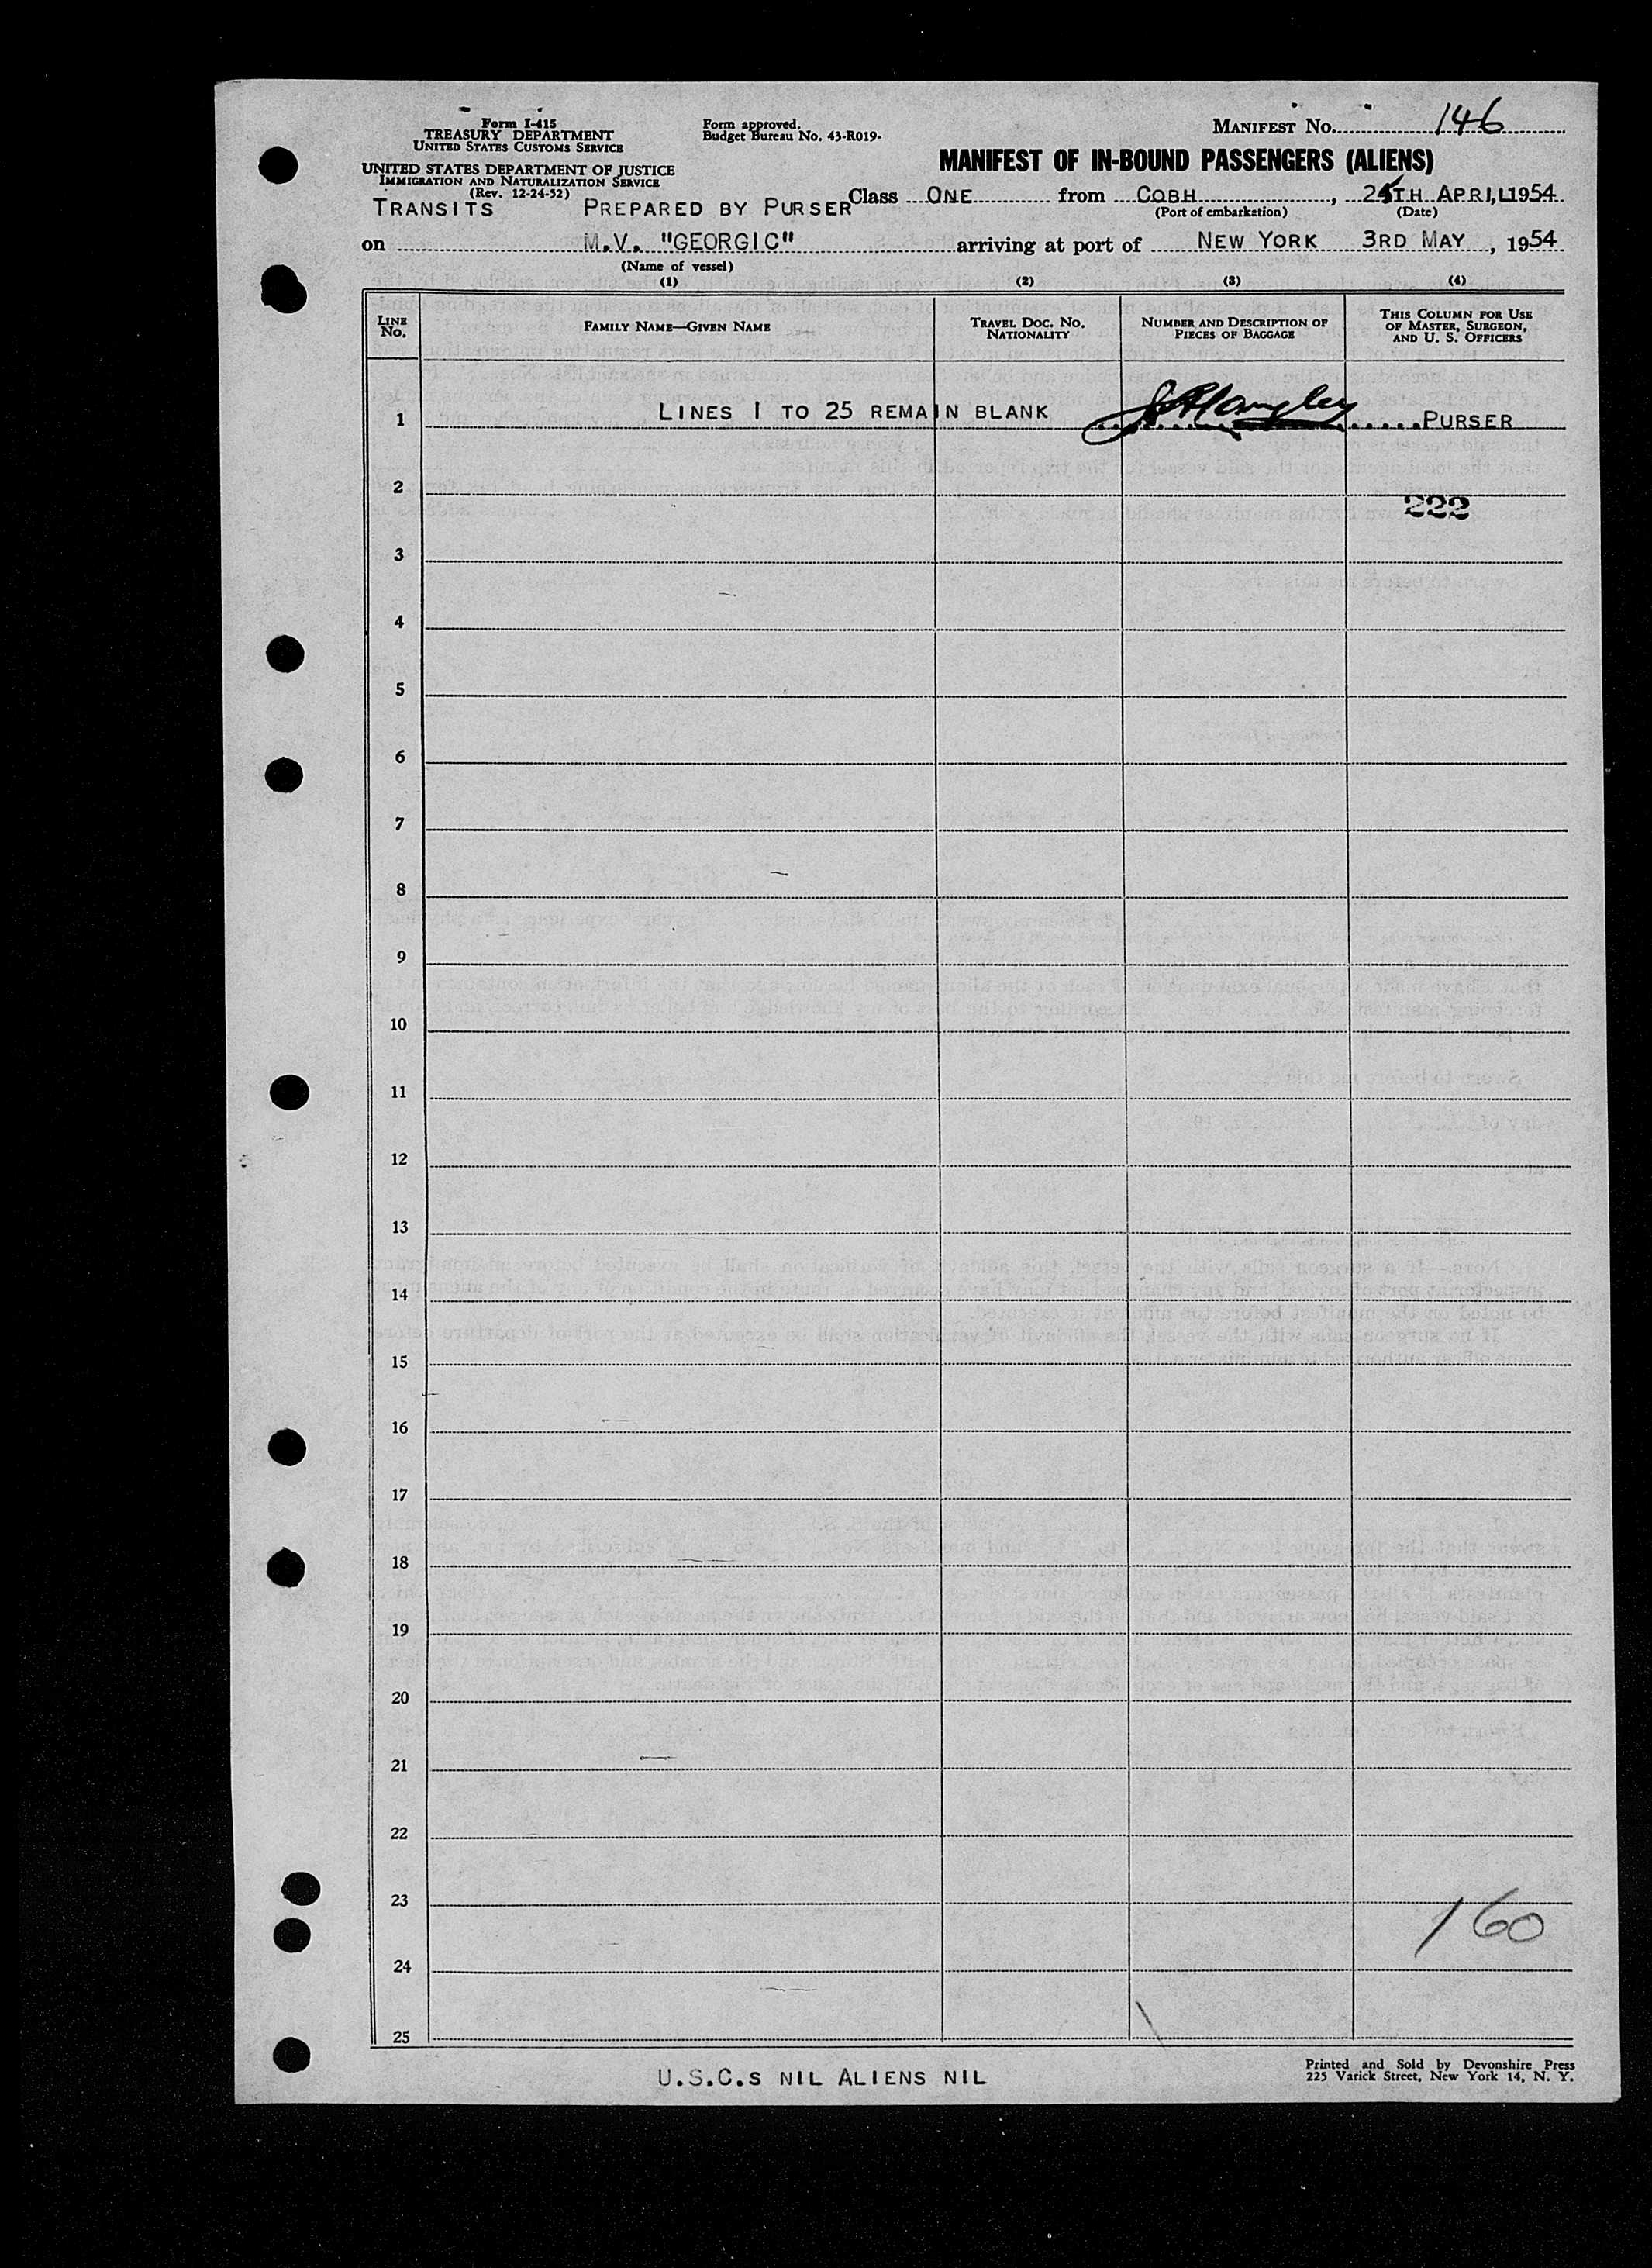 Form I-415
TREASURY DEPARTMENT
UNITED STATES CUSTOMS SERVICE
UNITED STATES DEPARTMENT OF JUSTICE
IMMIGRATION AND NATURALIZATION SERVICE
(Rev. 12-24-52)
Form approved.
Budget Bureau No. 43-R019-
MANIFEST No. 146
MANIFEST OF IN-BOUND PASSENGERS (ALIENS)
TRANSITS PREPARED BY PURSER Class ONE from COBH, APRIL 1954
(Port of embarkation) (Date)
on M.V. "GEORGIC" arriving at port of NEW YORK 3RD MAY, 1954
(Name of vessel)
(1) (2) (3) (4)
LINE No.
FAMILY NAME—GIVEN NAME
TRAVEL DOC. NO. NATIONALITY
NUMBER AND DESCRIPTION OF PIECES OF BAGGAGE
THIS COLUMN FOR USE OF MASTER, SURGEON, AND U. S. OFFICERS
1 LINES 1 TO 25 REMAIN BLANK Langley PURSER
2 222
3
4
5
6
7
8
9
10
11
12
13
14
15
16
17
18
19
20
21
22
23 160
24
25
U.S.C.s NIL ALIENS NIL
Printed and Sold by Devonshire Press
225 Varick Street, New York 14, N. Y.